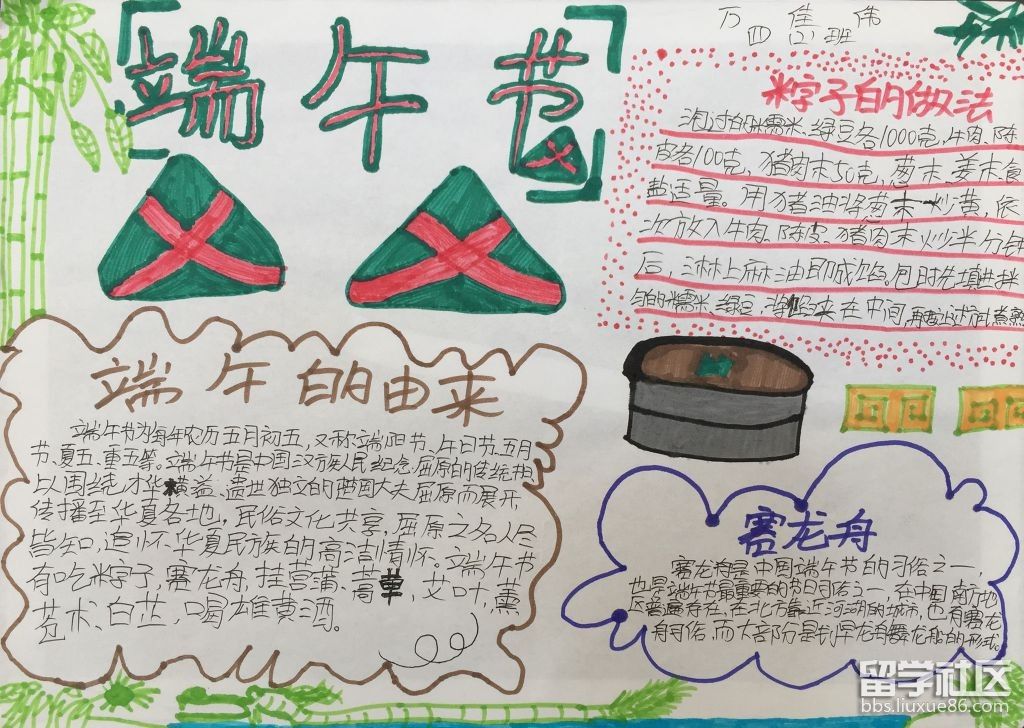 端午节
万佳伟
四(2)班
粽子的做法
泡过的糯米、绿豆各1000克,牛肉、陈
皮各100克,猪肉末50克,葱末、姜末食
盐适量。用猪油将葱末炒黄,依
次放入牛肉、陈皮、猪肉末炒半分钟
后,淋上麻油即成馅。包时先填进拌
匀的糯米、绿豆,将馅夹在中间,再
端午的由来
端午节为每年农历五月初五,又称端阳节、午日节、五月
节、夏五、重五等。端午节是中国汉族人民纪念屈原的传统节
以围绕才华横溢、遗世独立的楚国大夫屈原而展开,
传播至华夏各地,民俗文化共享,屈原之名人尽
皆知,追怀华夏民族的高洁情怀。端午节
有吃粽子,赛龙舟,挂菖蒲、蒿草,艾叶,薰
苍术、白芷,喝雄黄酒。
赛龙舟
赛龙舟是中国端午节的习俗之一,
也是端午节最重要的节日习俗之一,在中国南方地
区普遍存在,在北方靠近河湖的城市也有赛龙
舟习俗,而大部分是划旱龙舟舞龙船的形式。
留学社区
bbs.liuxue86.com